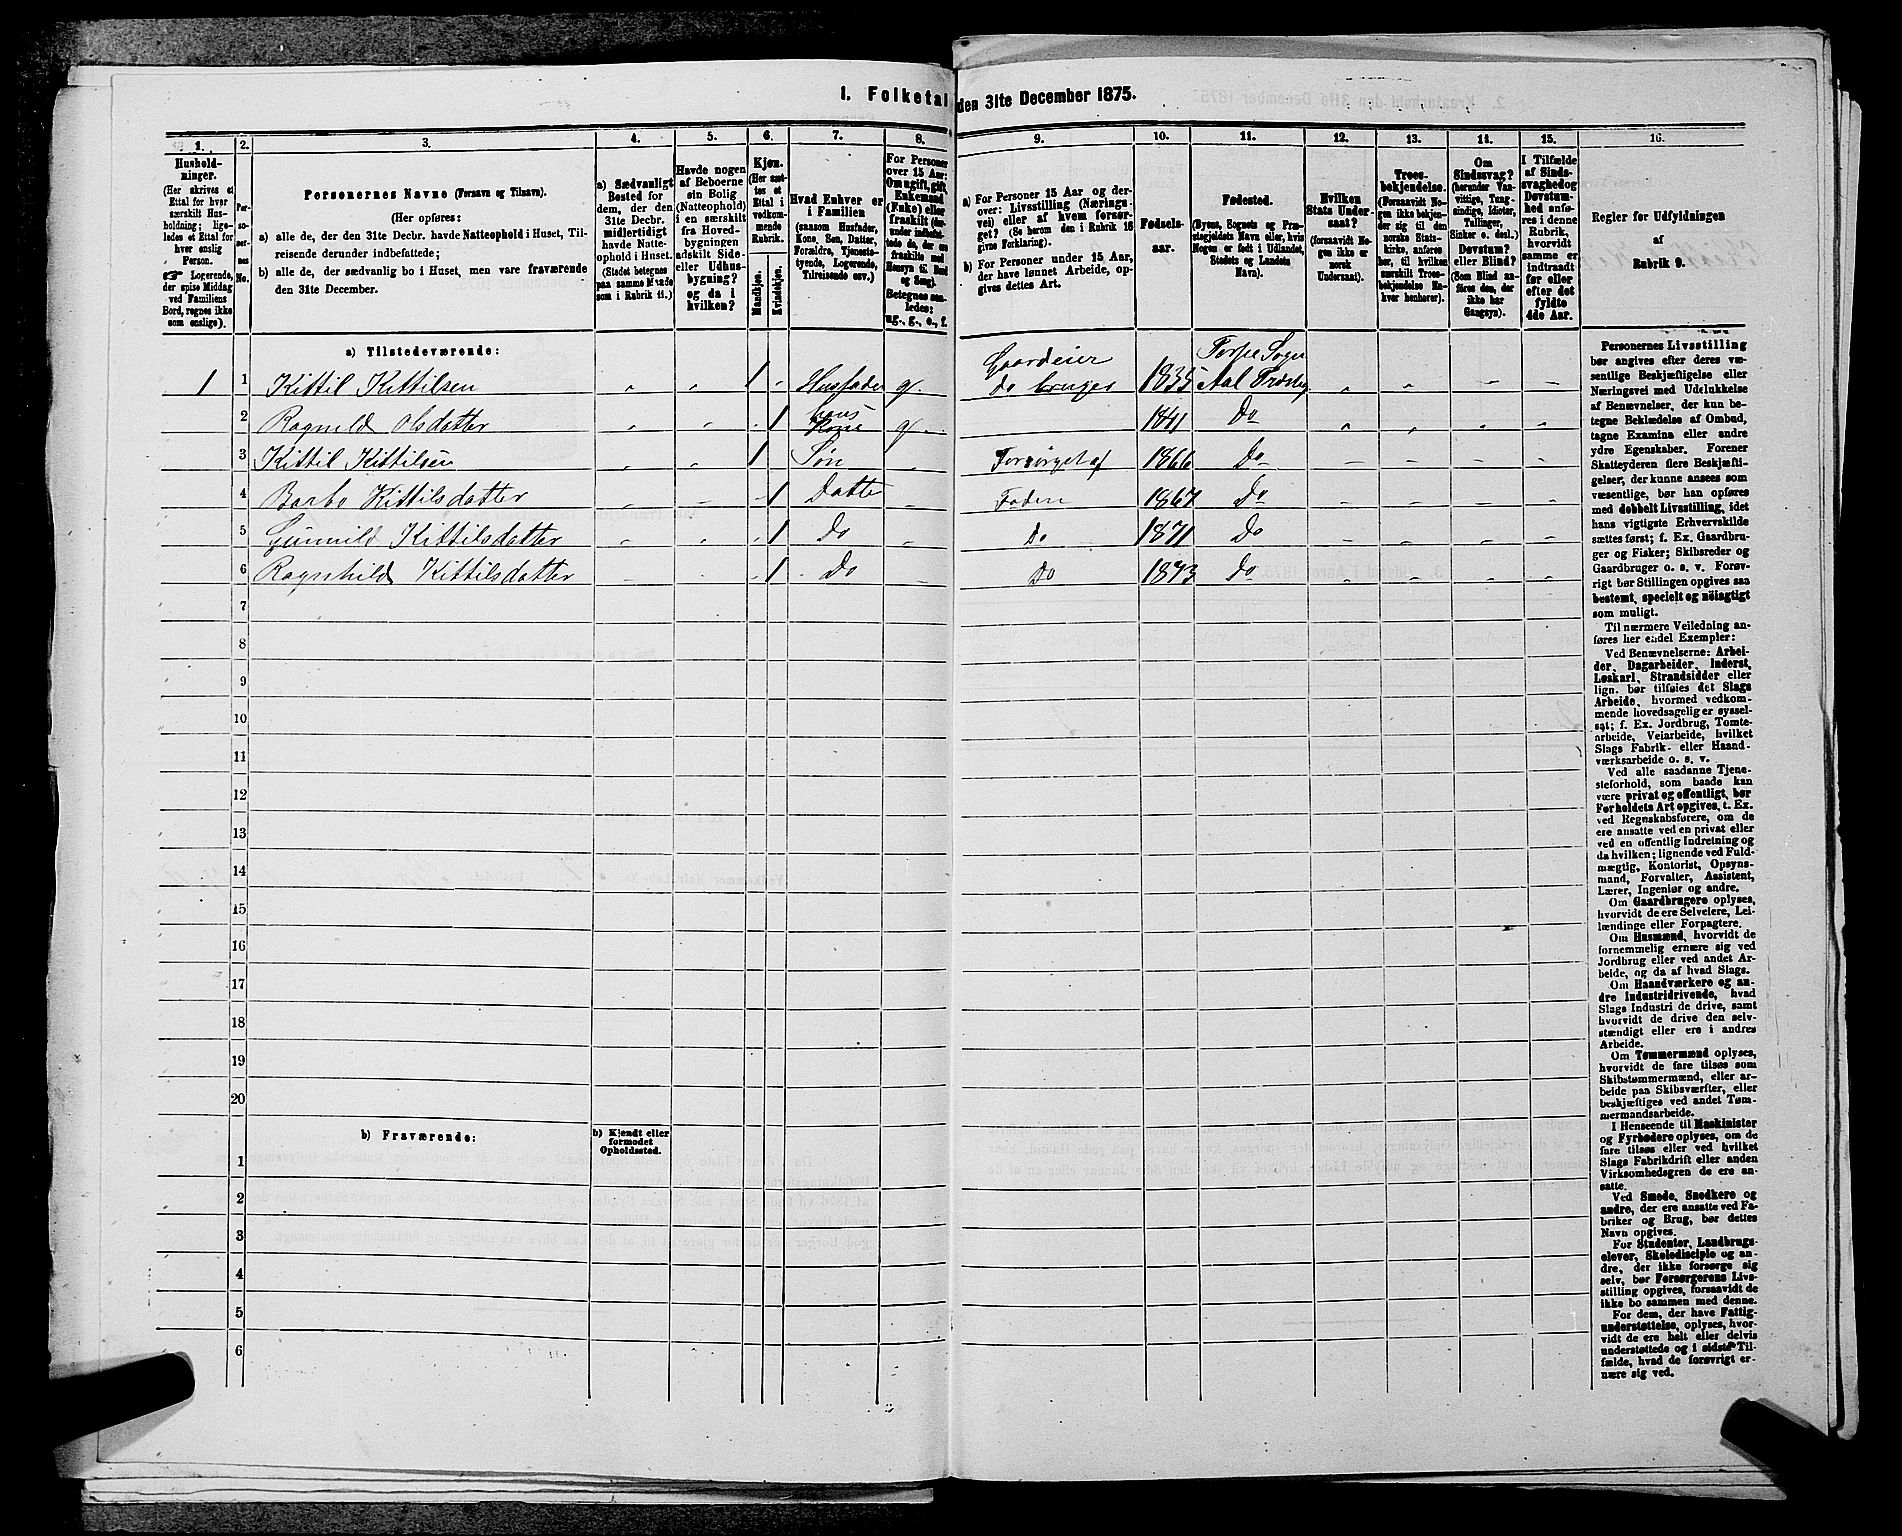 1. Folketal den 31te December 1875.
1. 2. 3. 4. 5. 6. 7. 8. 9. 10. 11. 12. 13. 14. 15. 16.
Hushold-
ninger.
(Her skrives et
Ettal for hver
særskilt Hus-
holdning; lige-
ledes et Ettal for
hver enslig
Person.
☛ Logerende,
der spise Middag
ved Familiens
Bord, regnes ikke
som enslige).
Per-
so-
ner-
nes
No.
Personernes Navne (Fornavn og Tilnavn).
(Her opføres:
a) alle de, der den 31te Decbr. havde Natteophold i Huset, Til-
reisende derunder indbefattede;
b) alle de, der sædvanlig bo i Huset, men vare fraværende
den 31te December.
a) Sædvanligt
Bosted for
dem, der den
31te Decbr.
midlertidigt
havde Natte-
ophold i Huset.
(Stedet betegnes
paa samme Maade
som i Rubrik 11.)
Havde nogen
af Beboerne
sin Bolig
(Natteophold)
i en særskilt
fra Hoved-
bygningen
adskilt Side-
eller Udhus-
bygning?
og da i
hvilken?
Kjøn.
(Her sæt-
tes et
Ettal i
vedkom-
mende
Rubrik.
Mandkjøn.
Kvindekjøn.
Hvad Enhver er
i Familien
(saasom Husfader,
Kone, Søn, Datter,
Forældre, Tjeneste-
tyende, Logerende,
Tilreisende osv.)
For Personer
over 15 Aar:
Om ugift, gift,
Enkemand
(Enke) eller
fraskilt
Betegnes saa-
ledes:
ug., g., e., f.
a) For Personer 15 Aar og der-
over: Livsstilling (Nærings-
vei) eller af hvem forsør-
get? (Se herom den i Rubrik 16
givne Forklaring).
b) For Personer under 15 Aar,
der have lønnet Arbeide, op-
gives dettes Art.
Fødsels-
aar.
Fødested.
(Byens, Sognets og Præ-
stegjeldets Navn eller, hvis
Nogen er født i Udlandet,
Stedets og Landets
Navn).
Hvilken
Stats Under-
saat?
(forsaavidt No-
gen ikke er
norsk
Undersaat).
Troes-
bekjendelse.
(Forsaavidt No-
gen ikke bekjen-
der sig til den
norske Stats-
kirke, anføres
her, til hvilken
særskilt Troes-
bekjendelse En-
hver henhører).
Om
Sindssvag?
(herunder Van-
vittige, Tung-
sindige, Idioter,
Tullinger,
Sinker o. desl.)
Døvstum?
eller Blind?
(Som Blind an-
føres den, der
ikke har
Gangsyn).
I Tilfælde
af Sinds-
svaghed og
Døvstum-
hed anfø-
res i denne
Rubrik,
hvorvidt
samme er
indtraadt
før eller
efter det
fyldte
4de Aar.
Regler for Udfyldningen
af
Rubrik 9.
a) Tilstedeværende:
1 1 Kittil Kittilsen 1 Husfader g. Gaardeier do bruger 1835 Torpe Sogn Aal
2 Ragnild Olsdatter 1 hans Kone g. 1841 Do
3 Kittil Kittilsen 1 Søn Forsørget af 1866 Do
4 Barbo Kittilsdatter 1 Datte Faden 1867 Do
5 Gunnild Kittilsdatter 1 Do Do 1871 Do
6 Ragnhild Kittilsdatter 1 Do Do 1873 Do
7
8
9
10
11
12
13
14
15
16
17
18
19
20
b) Fraværende: b) Kjendt eller
formodet
Opholdssted.
1
2
3
4
5
6
Personernes Livsstilling
bør angives efter deres væ-
sentlige Beskjæftigelse eller
Næringsvei med Udelukkelse
af Benævnelser, der kun be-
tegne Beklædelse af Ombud,
tagne Examina eller andre
ydre Egenskaber. Forener
Skatteyderen flere Beskjæfti-
gelser, der kunne ansees som
væsentlige, bør han opføres
med dobbelt Livsstilling, idet
hans vigtigste Erhvervskilde
sættes først; f. Ex. Gaardbru-
ger og Fisker; Skibsreder og
Gaardbruger o. s. v. Forøv-
rigt bør Stillingen opgives saa
bestemt, specielt og nöiagtigt
som muligt.
Til nærmere Veiledning an-
føres her endel Exempler:
Ved Benævnelserne: Arbei-
der, Dagarbeider, Inderst,
Løskarl, Strandsidder eller
lign. bør tilføies det Slags
Arbeide, hvormed vedkom-
mende hovedsagelig er syssel-
sat; f. Ex. Jordbrug, Tomte-
arbeide, Veiarbeide, hvilket
Slags Fabrik- eller Haand-
værksarbeide o. s. v.
Ved alle saadanne Tjene-
steforhold, som baade kan
være privat og offentligt, bør
Forholdets Art opgives, t. Ex.
ved Regnskabsførere, om de
ere ansatte ved en privat eller
ved en offentlig Indretning og
da hvilken; lignende ved Fuld-
mægtig, Kontorist, Opsyns-
mand, Forvalter, Assistent,
Lærer, Ingeniør og andre.
Om Gaardbrugere oplyses,
hvorvidt de ere Selveiere, Lei-
lændinge eller Forpagtere.
Om Husmænd, hvorvidt de
fornemmelig ernære sig ved
Jordbrug eller ved andet Ar-
beide, og da af hvad Slags.
Om Haandværkere og an-
dre industridrivende, hvad
Slags Industri de drive, samt
hvorvidt de drive den selv-
stændigt eller ere i andres
Arbeide.
Om Tømmermænd oplyses,
hvorvidt de fare tilsøs som
Skibstømmermænd, eller ar-
beide paa Skibsværfter, eller
beskjæftiges ved andet Tøm-
mermandsarbeide.
I Henseende til Maskinister
og Fyrbødere oplyses, om de
fare tilsøs eller ved hvilket
Slags Fabrikdrift eller anden
Virksomhedsgren de ere an-
satte.
Ved Smede, Snedkere og
andre, der ere ansatte ved Fa-
briker og Brug, bør dettes
Navn opgives.
For Studenter, Landbrugs-
elever, Skoledisciple og an-
dre, der ikke forsørge sig
selv, bør Forsørgerens Livs-
stilling opgives, forsaavidt de
ikke bo sammen med denne.
For dem, der have Fattig-
understøttelse, oplyses, hvor-
vidt de ere helt eller delvis
understøttede og i sidste Til-
fælde, hvad de forøvrigt er-
nære sig ved.